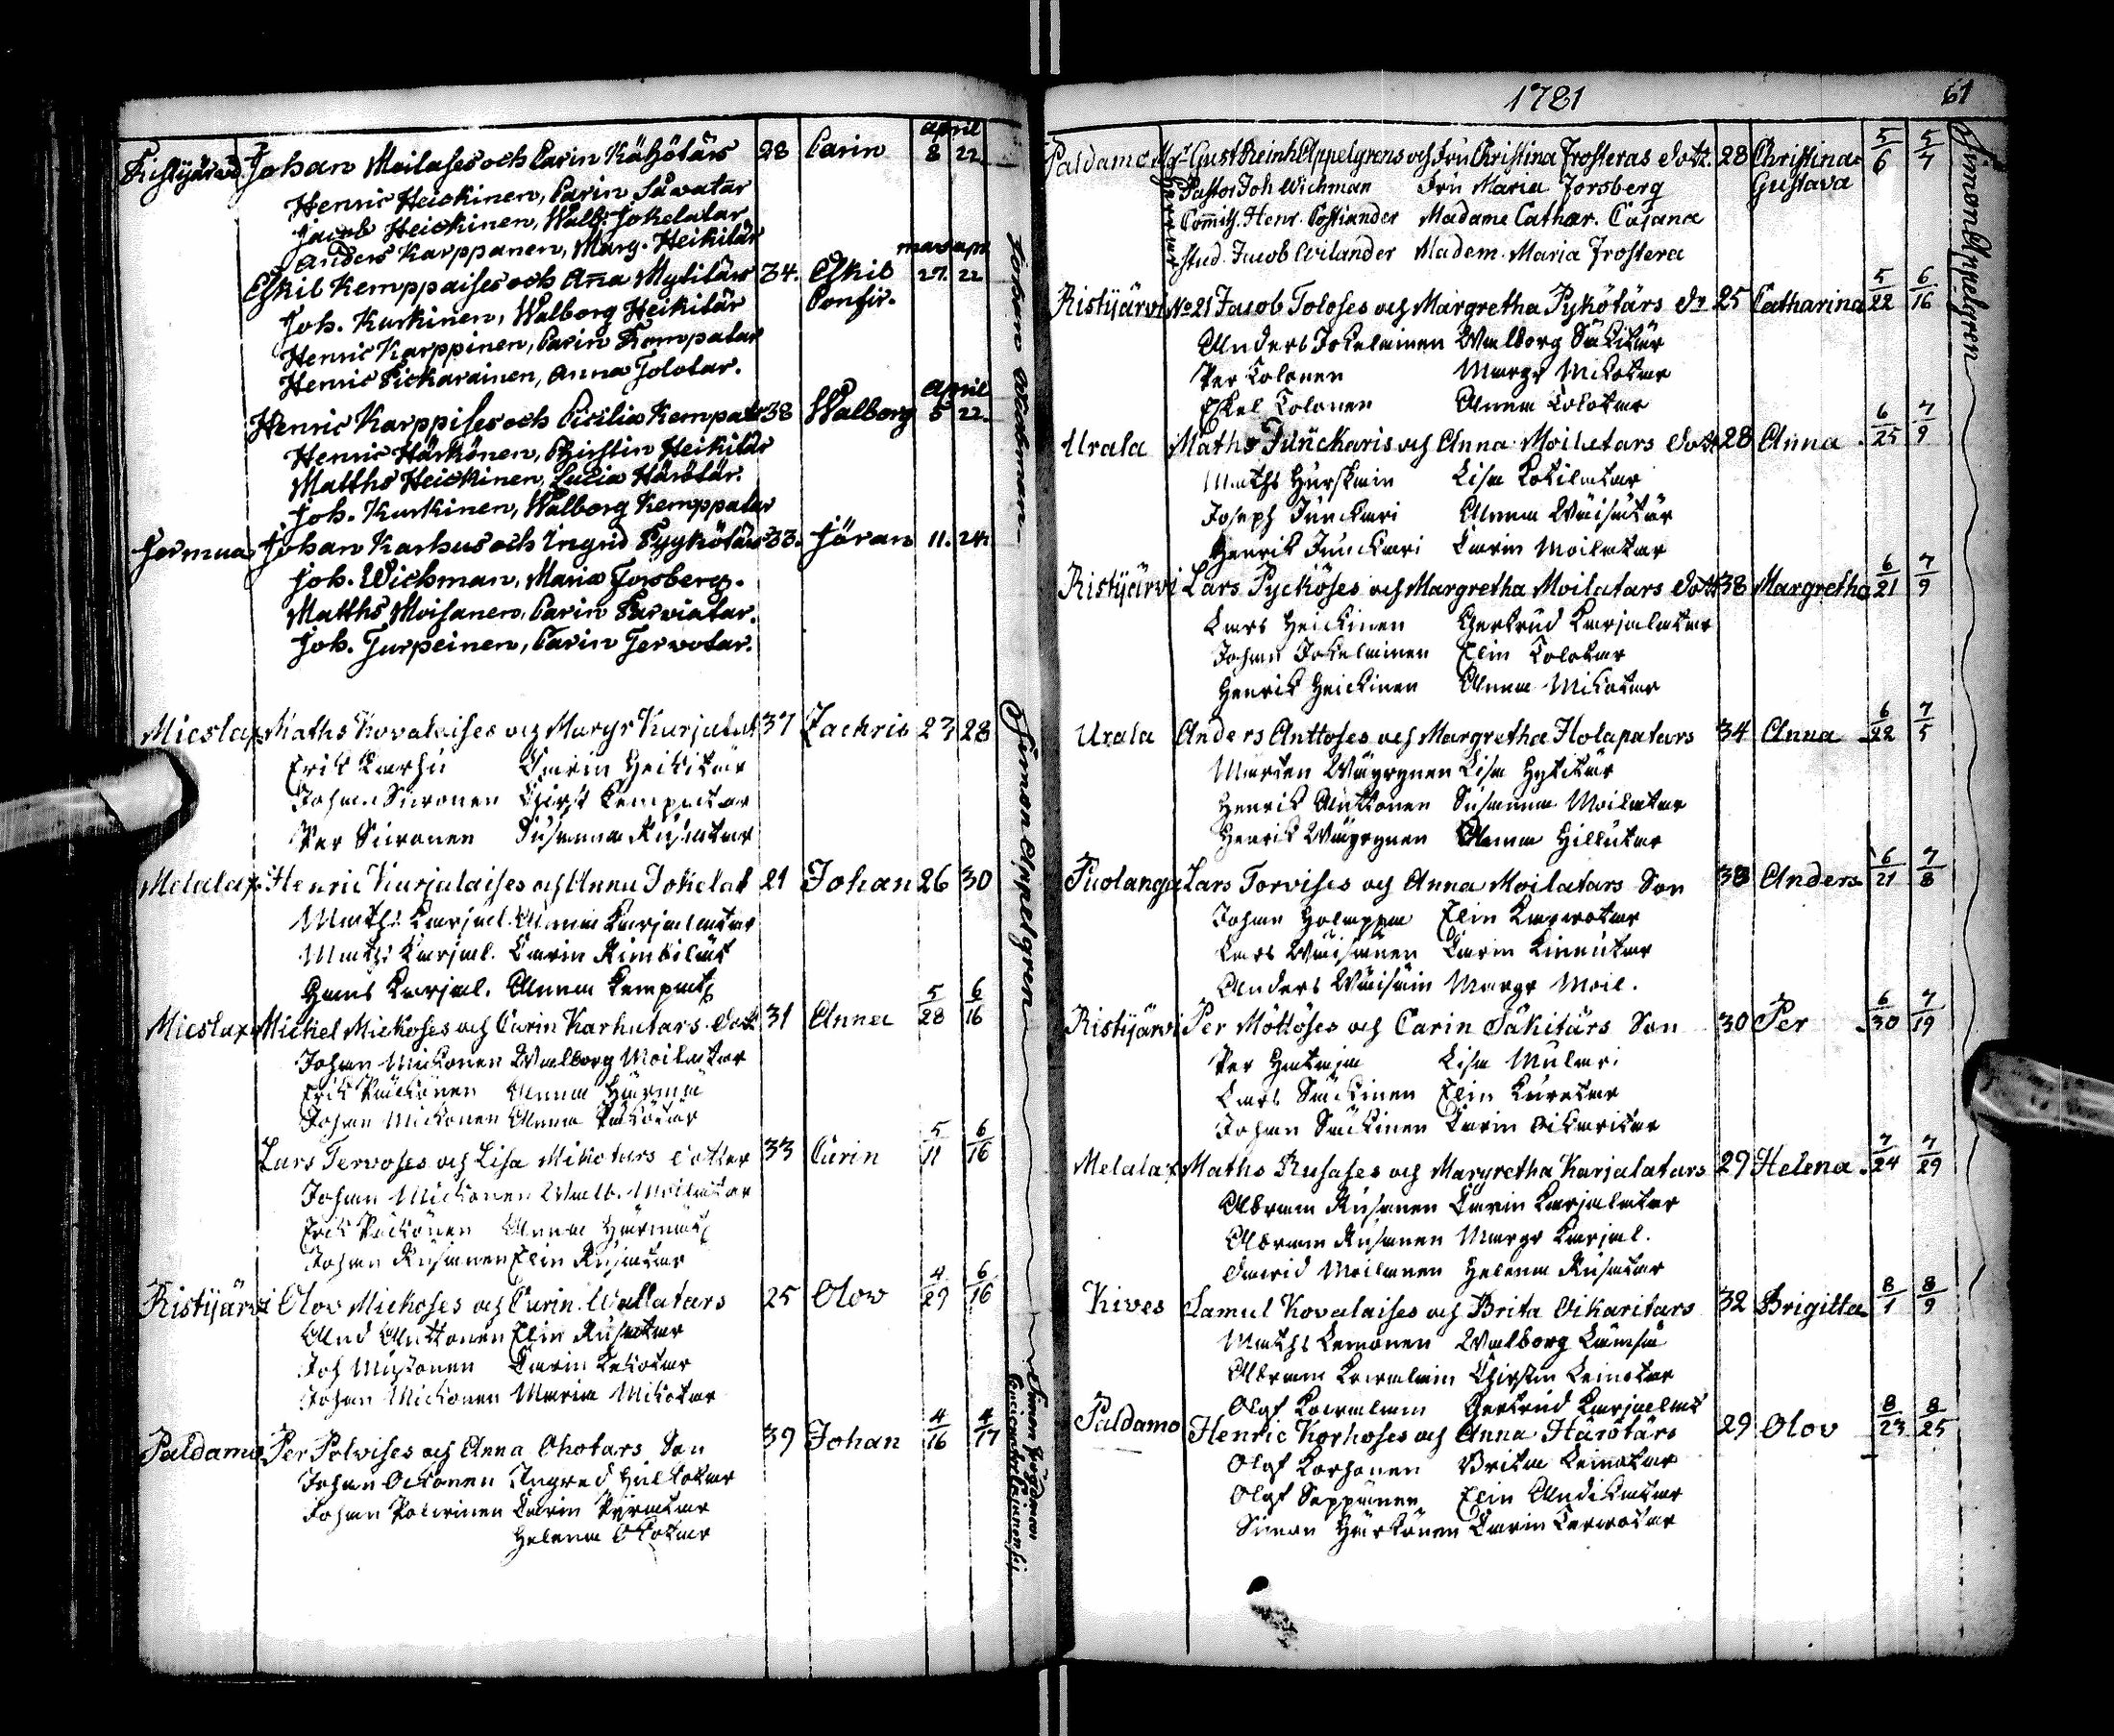 april
Ristijärvi Johan Moilases och Carin Kähötärs 28 Carin 8 22
Henric Heickinen, Carin Säwatar
Jacob Heickinen, Walb. Jokelatar
Anders Karppanen, Marg. Heikitär
mars apr
Eskil Kemppaises och Aña Mylitärs 34. Eskil 27. 22
Joh. Kurkinen, Walborg Heikitär Confir.
Henric Karppinen, Carin Kempatar
Henric Pickarainen, Anna Tolotar.
April
Henric Karppises och Cicilia Kempat 38 Walborg 5 22
Henric Härkönen, Christin Heikitär
Matths Heickinen, Lucia Härötär.
Joh. Kurkinen, Walborg Kemppatar
Jormua Johan Karhus och Ingrid Pyykötärs 33. Jöran 11. 24.
Joh. Wichman, Maria Forsberg.
Matths Moisanen, Carin Parviatar.
Joh. Turpeinen, Carin Tervotar.
Johan Wichman
Mieslax Maths Kovalaises och Margr Karjalat 37 Zachris 23 28
Erik Karhu Carin Heikitär
Johan Siironen Christ Kempatar
Per Siironen Susanna Rusatar
Melalax Henric Karjalaises och Anna Jokelat 21 Johan 26 30
Maths Karjal. Anna Karjalatar
Maths Karjal. Carin Kimbilät
Hans Karjal. Anna Kempat
Mieslax Mickel Mickoses och Carin Karhutars Dott 31 Anna 5/28 6/16
Johan Mickonen Walborg Moilatar
Erik Päckönen Anna Härmä
Johan Mickonen Anna Päkötär
Lars Tervoses och Lisa Mikotars Dotter 33 Carin 5/11 6/16
Johan Mickonen Walb. Moilatar
Erik Päckönen Anna Härmät
Johan Rusanen Elin Rusatar
Ristijärvi Olov Mickoses och Carin Wallatars 25 Olov 4/29 6/16
And Anttonen Elin Rusatar
Joh Mustonen Carin Kekotar
Johan Mickonen Maria Mikotar
Paldamo Per Polvises och Anna Okotars Son 39 Johan 4/16 4/17
Johan Ockonen Ingred Hulkotar
Johan Polvinen Carin Pyratar
Helena Okotar
Simon Appelgren
Simon
1781 61
Paldamo Mgr Gust Reinh Appelgrens och Fru Christina Frosteras Dott. 28 Christina 5/6 5/7
Pastor Joh Wichman Fru Maria Forsberg Gustava
Comīn. Henr. Costiander Madame Cathar. Cajana
Stud. Jacob Cvilander Madem. Maria Frostera
Ristijärvi No 21 Jacob Toloses och Margretha Pykötärs Dr 25 Catharina 5/22 6/16
Anders Jokelainen Walborg Säkitär
Per Tolonen Margr Mikotar
Eskel Tolonen Anna Tolotar
Urala Maths Junckaris och Anna Moilatars Dott 28 Anna 6/25 7/9
Maths Hurskain Lisa Kokilatar
Joseph Junckari Anna Wäisätär
Henrik Junckari Carin Moilatar
Ristijärvi Lars Pycköses och Margretha Moilatars Dott 38 Margretha 6/21 7/9
Lars Heickinen Gertrud Karjalatar
Johan Jokelainen Elin Tolotar
Henrik Heickinen Anna Mikotar
Urala Anders Anttoses och Margretha Holapatars 34 Anna 6/22 7/5
Marten Wäyrynen Lisa Hykitär
Henrik Anttonen Susanna Moilatar
Henrik Wäyrynen Anna Hillutar
Puolanga Lars Torvises och Anna Moilatars Son 38 Anders 6/21 7/8
Johan Holappa Elin Karwotar
Lars Wäisänen Carin Kinnutar
Anders Wäisäin Margr Moil.
Ristijärvi Per Möttöses och Carin Säkitärs Son 30 Per 6/30 7/19
Per Hataja Lisa Mulari
Lars Säckinen Elin Kuratar
Johan Säckinen Carin Oikaritar
Melalax Maths Rusases och Margretha Karjalatars 29 Helena 7/24 7/29
Abram Rusanen Carin Karjalatar
Abram Rusanen Margr Karjal.
David Moilanen Helena Rusatar
Kives Samul Kovalaises och Brita Oikaritars 32 Brigitta 8/1 8/9
Maths Leinonen Walborg Lämsä
Abram Kowalain Christin Leinotar
Olof Kowalain Gertrud Karjalat
Paldamo Henric Korhoses och Anna Härötärs 29 Olov 8/23 8/25
Olof Korhonen Brita Leinotar
Olof Seppänen Elin Andikatar
Simon Härkönen Carin Terwotar
Simon Appelgren